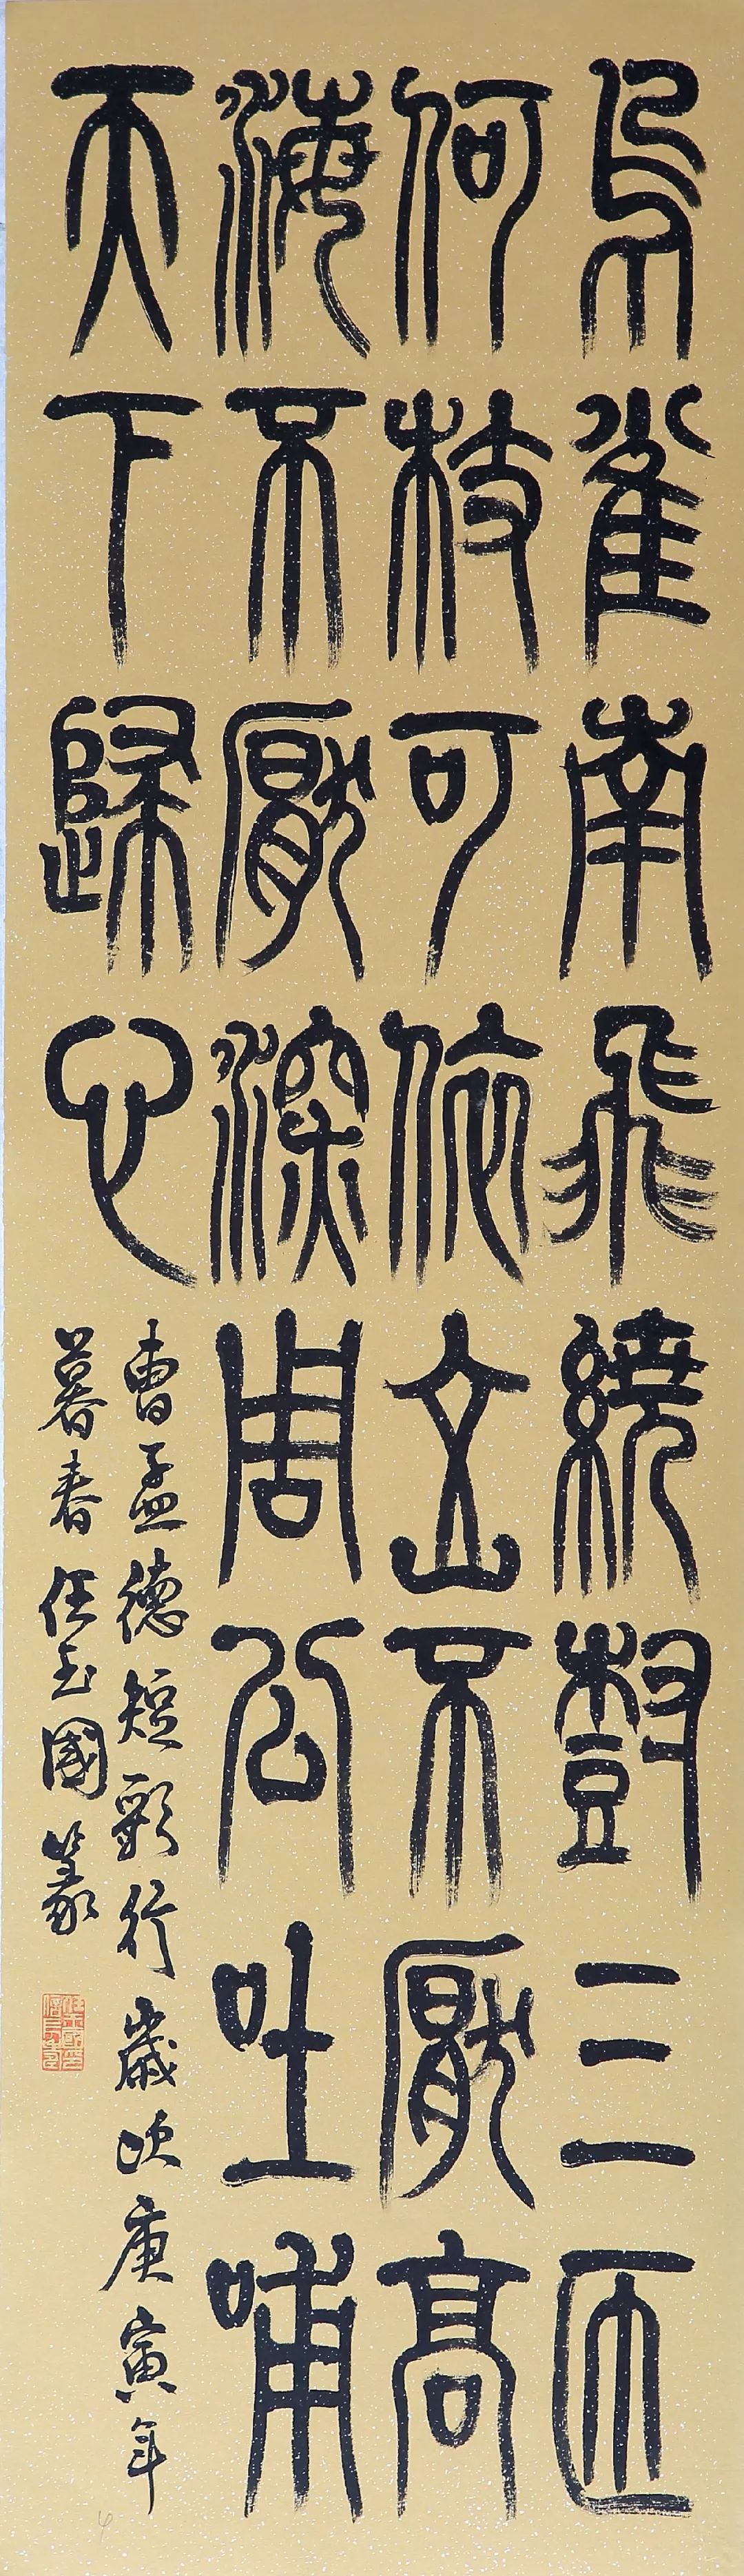 烏雀南飛繞樹三匝
何枝可依山不厭高
海不厭深周公吐哺
天下歸心
曹孟德短歌行歲次庚寅年
暮春任玉國篆